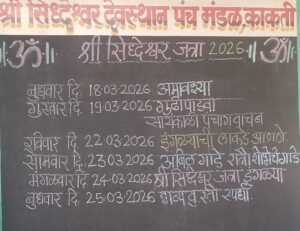 श्री सिध्देश्वर देवस्थान पंच मंडळ, काकती
ॐ श्री सिध्देश्वर जत्रा 2026 ॐ
बुधवार दि. 18.03.2026 अमावश्या
गुरुवार दि. 19.03.2026 गुढीपाडवा
सायंकाळी पंचांगवाचन
रविवार दि. 22.03.2026 इंगळ्याची लाकडे आणणे
सोमवार दि. 23.03.2026 गाडे रात्रौ
मंगळवार दि. 24.03.2026 श्री सिध्देश्वर जत्रा इंगळ्या
बुधवार दि. 25.03.2026 शर्यती